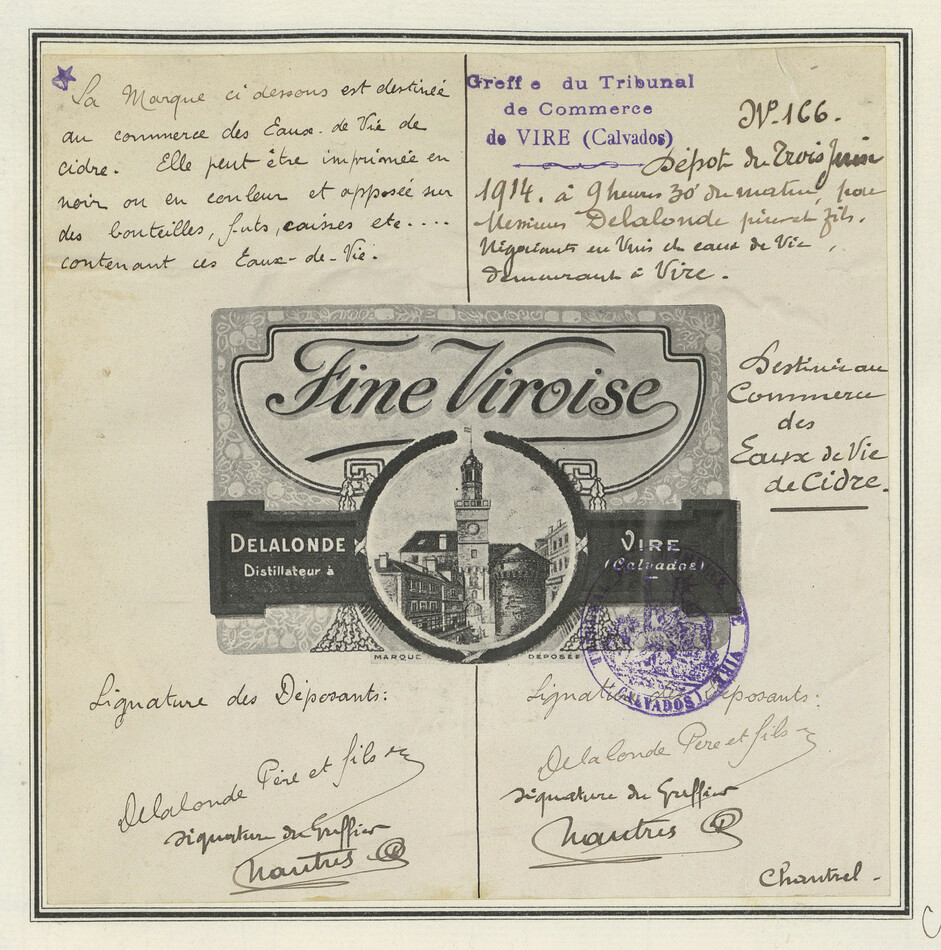 La Marque ci dessous est destinée
au commerce des Eaux-de Vie de
cidre. Elle peut être imprimée en
noir ou en couleur et apposée sur
des bouteilles, futs, caisses etc....
contenant ces Eaux-de-Vie.
Greffe du Tribunal
de Commerce
de VIRE (Calvados)
No. 166.
Dépot du Trois Juin
1914. à 9 heures 30' du matin, pour
Messieurs Delalonde père et fils.
Négociants en Vins et eaux de Vie,
demeurant à Vire.
Fine Viroise
Destinée au
Commerce
des
Eaux de Vie
de Cidre.
DELALONDE
Distillateur à
VIRE
(Calvados)
MARQUE DÉPOSÉE
VIRE
(CALVADOS)
Signature des Déposants:
Delalonde Père et fils
signature du Greffier
Nautris
Signature des déposants:
Delalonde Père et fils
signature du Greffier
Nautris
Chantrel.